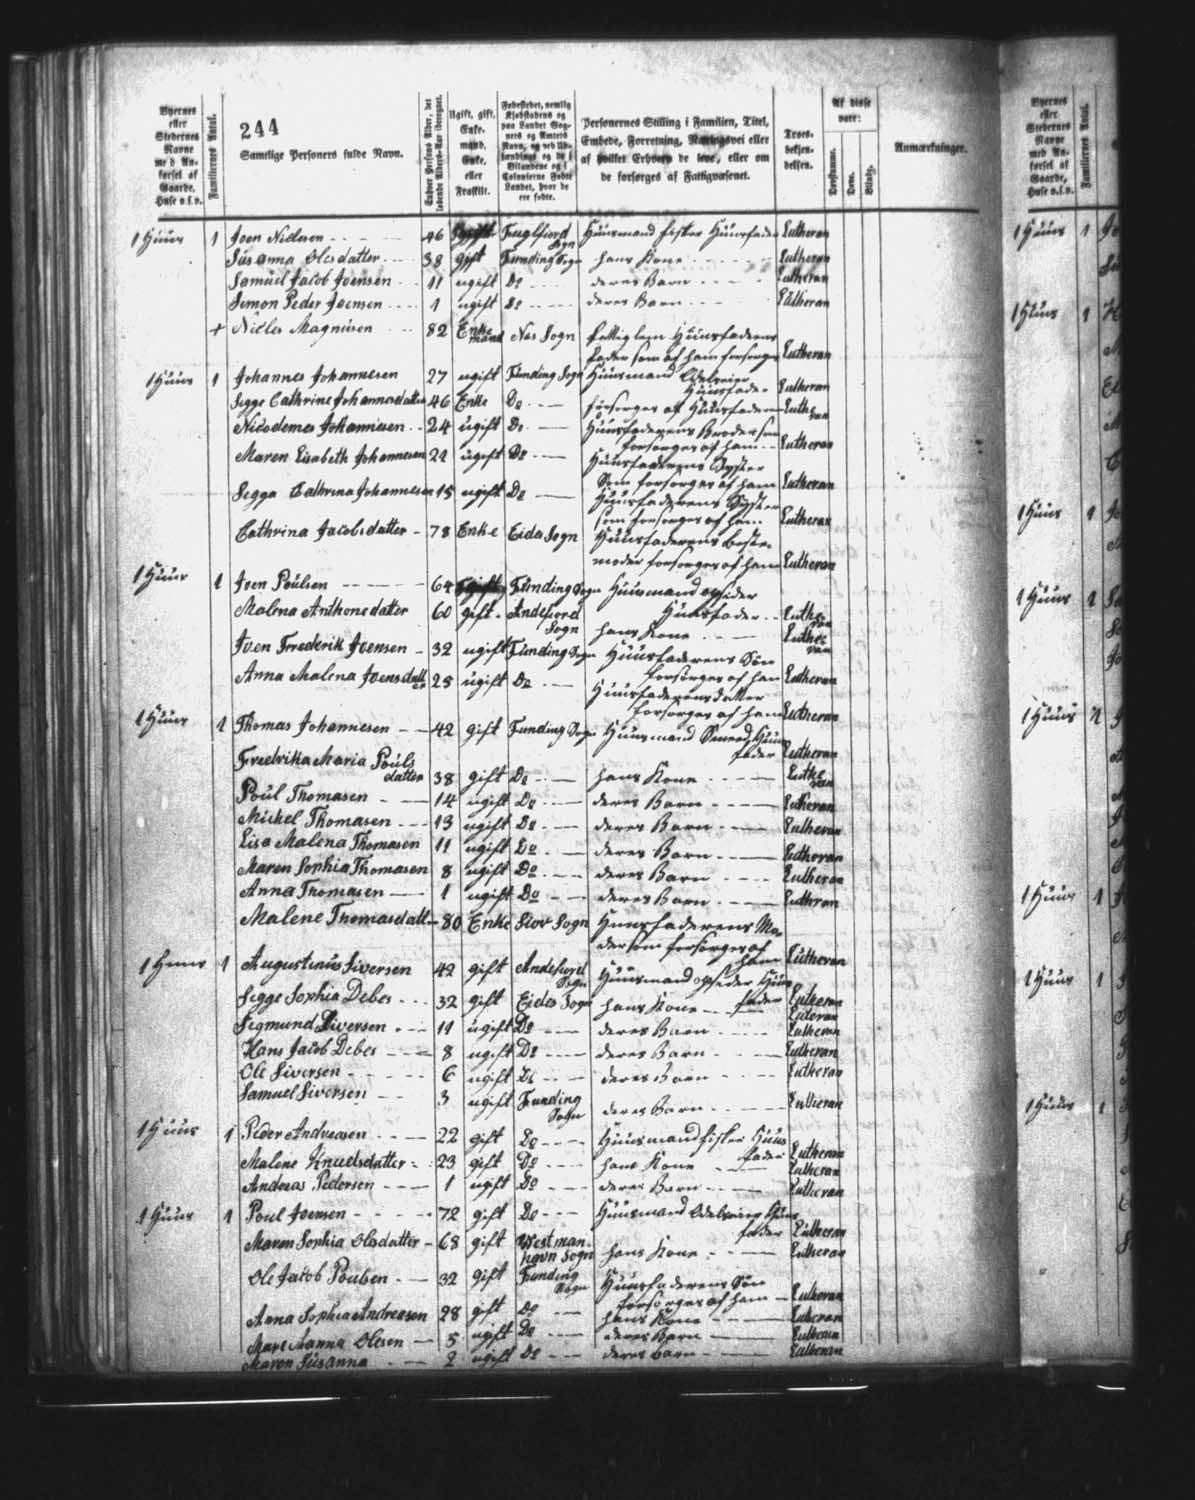 Byernes eller Stedernes Navne med Anførsel af Gaarde, Huse o.s.v.
Familiernes Antal.
244
Samtlige Personers fulde Navn.
Enhver Persons Alder, det løbende Alders-Aar iberegnet.
Ugift, gift, Enkemand, Enke, eller Fraskilt.
Fødestedet, nemlig Kjøbstadens og paa Landet Sognets og Amtets Navn, og ved Udlændinge og de i Bilandene og i Colonierne Fødte Landet, hvor de ere fødte.
Personernes Stilling i Familien, Titel, Embede, Forretning, Næringsvei eller af hvilket Erhverv de leve, eller om de forsørges af Fattigvæsenet.
Troesbekjendelsen.
Af disse vare:
Døvstumme.
Døve.
Blinde.
Anmærkninger.
1 Huus 1 Joen Niclesen 46 Fuglfiord Sogn Huusmand fisker Huusfader Lutheran
Susanna Olesdatter 38 gift Funding Sogn hans Kone Lutheran
Samuel Jacob Joensen 11 ugift Do deres Barn Lutheran
Simon Peder Joensen 1 ugift Do deres Barn Lutheran
+ Nicles Magnusen 82 Enkemand Nas Sogn fattiglem Huusfaderens
fader som af ham forsørges Lutheran
1 Huus 1 Johannes Johannesen 27 ugift Funding Sogn Huusmand Odelseier
Huusfader Lutheran
Segge Cathrine Johannesdatter 46 Enke Do forsørges af Huusfaderen Lutheran
Nicodemes Johannesen 24 ugift Do Huusfaderens Broder som
forsørges af ham Lutheran
Maren Elsabeth Johannesen 21 ugift Do Huusfaderens Syster
Som forsørges af ham Lutheran
Segga Cathrina Johannesen 15 ugift Do Huusfaderens Syster
som forsørges af ham Lutheran
Cathrina Jacobsdatter 78 Enke Eide Sogn Huusfaderens beste-
moder forsørges af ham Lutheran
1 Huus 1 Joen Poulsen 64 Funding Sogn Huusmand opsider
Huusfader Lutheran
Malena Anthonedatter 60 gift Andefiord Sogn hans Kone Lutheran
Joen Frederik Joensen 32 ugift Funding Sogn Huusfaderens Søn
forsørges af ham Lutheran
Anna Malena Joensdatter 25 ugift Do Huusfaderens datter
forsørges af ham Lutheran
1 Huus 1 Thomas Johannesen 42 gift Funding Sogn Huusmand Smeed Huus
fader Lutheran
Fredrika Maria Pouls
datter 38 gift Do hans Kone Lutheran
Poul Thomasen 14 ugift Do deres Barn Lutheran
Mickel Thomasen 13 ugift Do deres Barn Lutheran
Lisa Malena Thomasen 11 ugift Do deres Barn Lutheran
Maren Sophia Thomasen 8 ugift Do deres Barn Lutheran
Anna Thomasen 1 ugift Do deres Barn Luthran
Malene Thomasdatt 80 Enke Slov Sogn Huusfaderens Mo-
der som forsørges af
ham Lutheran
1 Huus 1 Augustinus Siversen 42 gift Andefiord Sogn Huusmand opsider Huus
fader Lutheran
Segge Sophia Debes 32 gift Eides Sogn hans Kone Luteran
Segmund Siversen 11 ugift Do deres Barn Lutheran
Hans Jacob Debes 8 ugift Do deres Barn Lutheran
Ole Siversen 6 ugift Do deres Barn Lutheran
Samuel Siversen 3 ugift Funding Sogn deres Barn Lutheran
1 Huus 1 Peder Andreasen 22 gift Do Huusmand fisker Huus
fader Lutheran
Malene Knuelsdatter 23 gift Do hans Kone Lutheran
Andreas Pedersen 1 ugift Do deres Barn Lutheran
1 Huus 1 Poul Joensen 72 gift Do Huusmand Odelseier Huus
fader Lutheran
Maren Sophia Olsdatter 68 gift Westmanhavn Sogn hans Kone Lutheran
Ole Jacob Poulsen 32 gift Funding Sogn Huusfaderens Søn
forsørges af ham Lutheran
Anna Sophia Andreasen 28 gift Do hans Kone Lutheran
Olesen 5 ugift Do deres Barn Lutheran
Maren Susanna 2 ugift Do deres barn Lutheran
Byernes eller Stedernes Navne med Anførsel af Gaarde, Huse o.s.v.
Familiernes Antal.
1 Huus 1
1 Huus 1
1 Huus 1
1 Huus 1
1 Huus
1 Huus 1
1 Huus 1
1 Huus 1